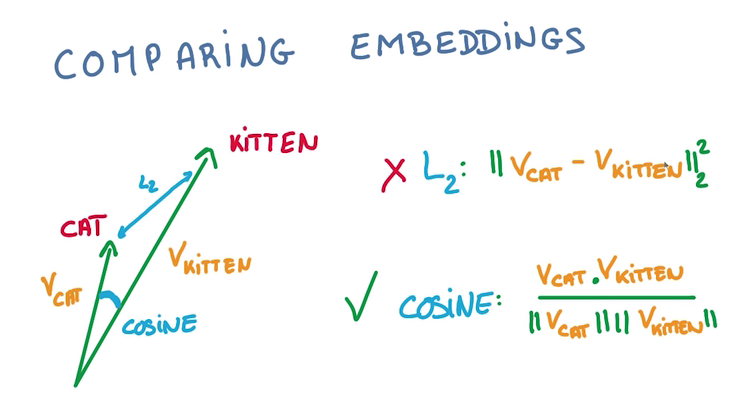 COMPARING EMBEDDINGS
KITTEN
L2
CAT
VCAT
VKITTEN
COSINE
X L2: || VCAT - VKITTEN ||22
✓ COSINE: VCAT . VKITTEN
|| VCAT || || VKITTEN ||